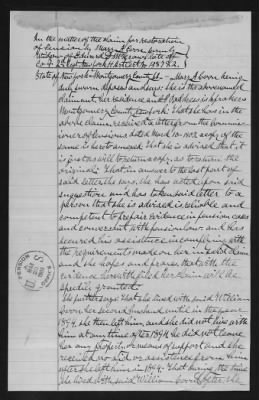 In the matter of the claim for restoration
of pension by Mary A. Corn formerly
widow of Edward
Co. 2d Regt.
State of New York Montgomery County SS. Mary A Corn being
duly sworn deposes and says: She is the above named
claimant, her residence and P.O. address is
Montgomery County New York: That she has in the
above claim received a letter from the Commiss-
ioner of Pensions dated March 10 1902 copy of the
same is hereto annexed: That she is advised that it
is just as well to return a copy, as to return the
original: That in answer to the last part of
said letter she says, she has acted upon said
suggestion and has taken said letter to a
person that she is advised is reliable and
competent to prepare evidence in pension cases
and conversant with pension laws and has
secured his assistance in complying with
the requirements made on her in said claim
and she hopes and prays that with the
evidence herewith filed her claim will be
speedily granted.
She further says: That she lived with said William
Corn her second husband until in the year
1894, she then left him, and she did not live with
him at any time after 1894. He did not leave
her any property or means of support and she
received no aid or assistance from him
after she left him in 1894. That during the time
she lived with said William Corn, she